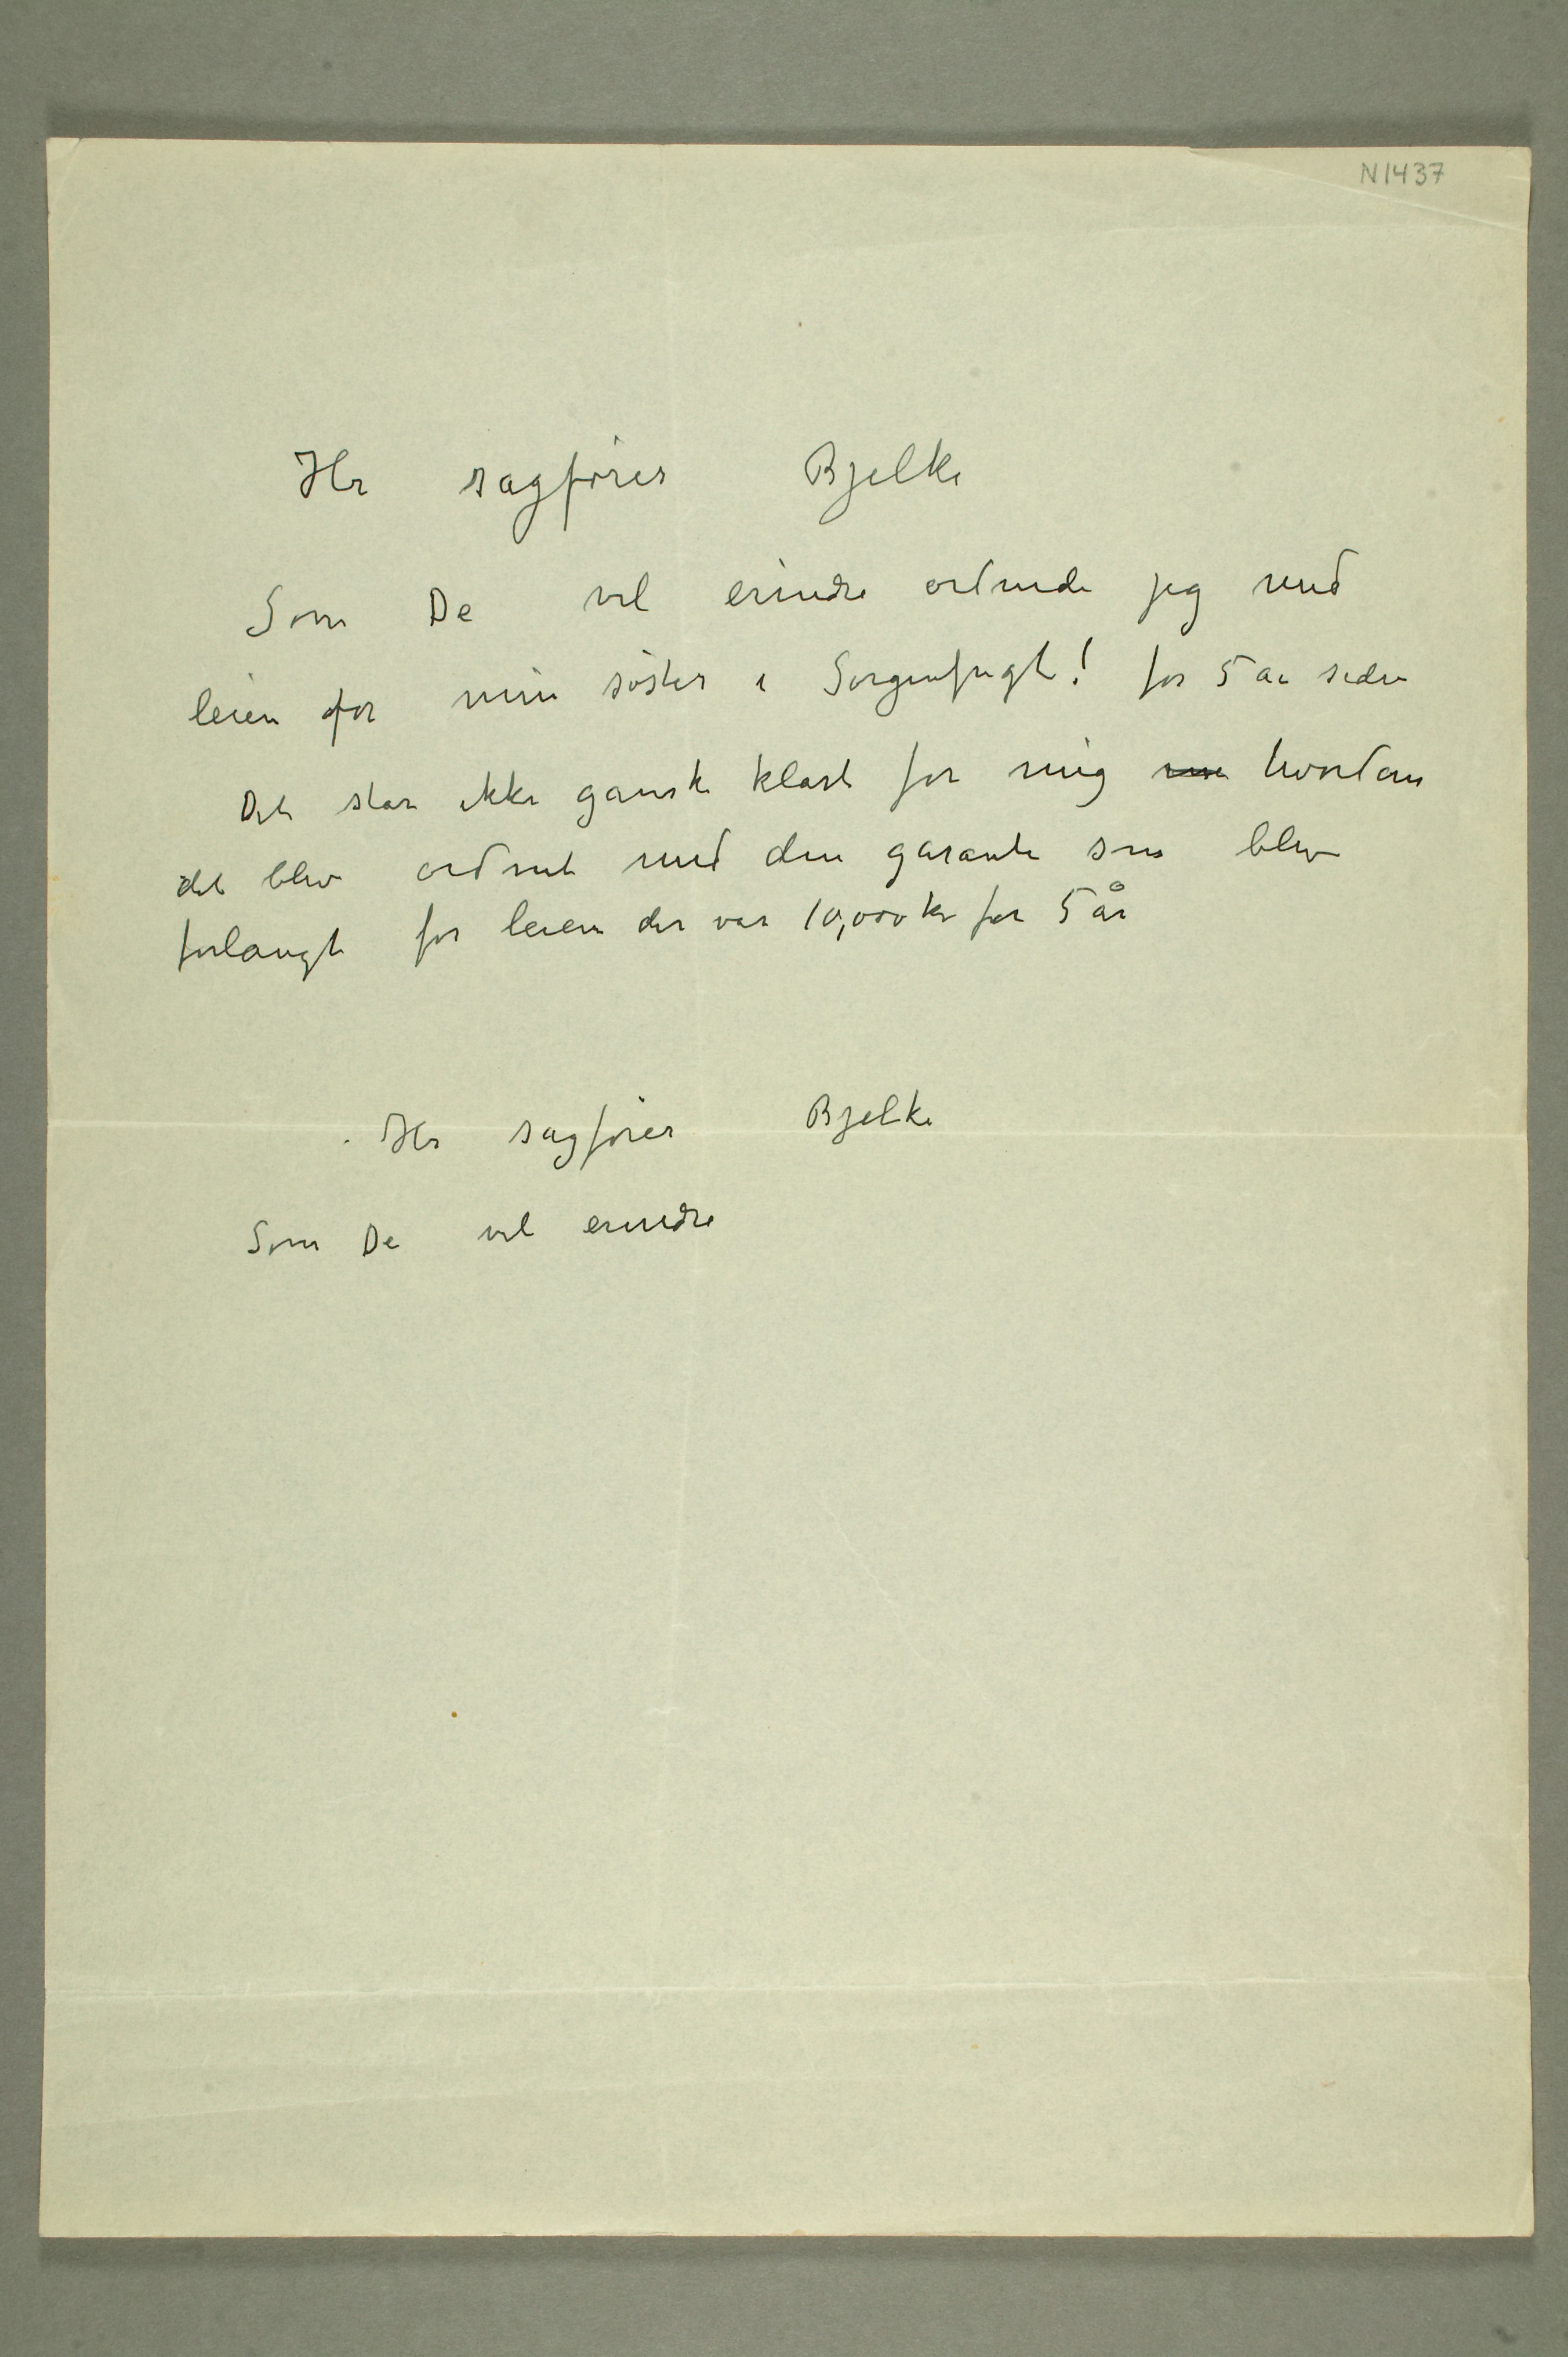 N1437
Hr sagfører Bjelke
Som De vil erindre ordnede jeg med
leien for min søster i Sorgenfrigt! for 5 år siden
Det står ikke ganske klart for mig hvordan
det blev ordnet med den garanti som blev
forlangt for leien der var 10,000 kr for 5 år
Hr sagfører Bjelke
Som De vil erindre